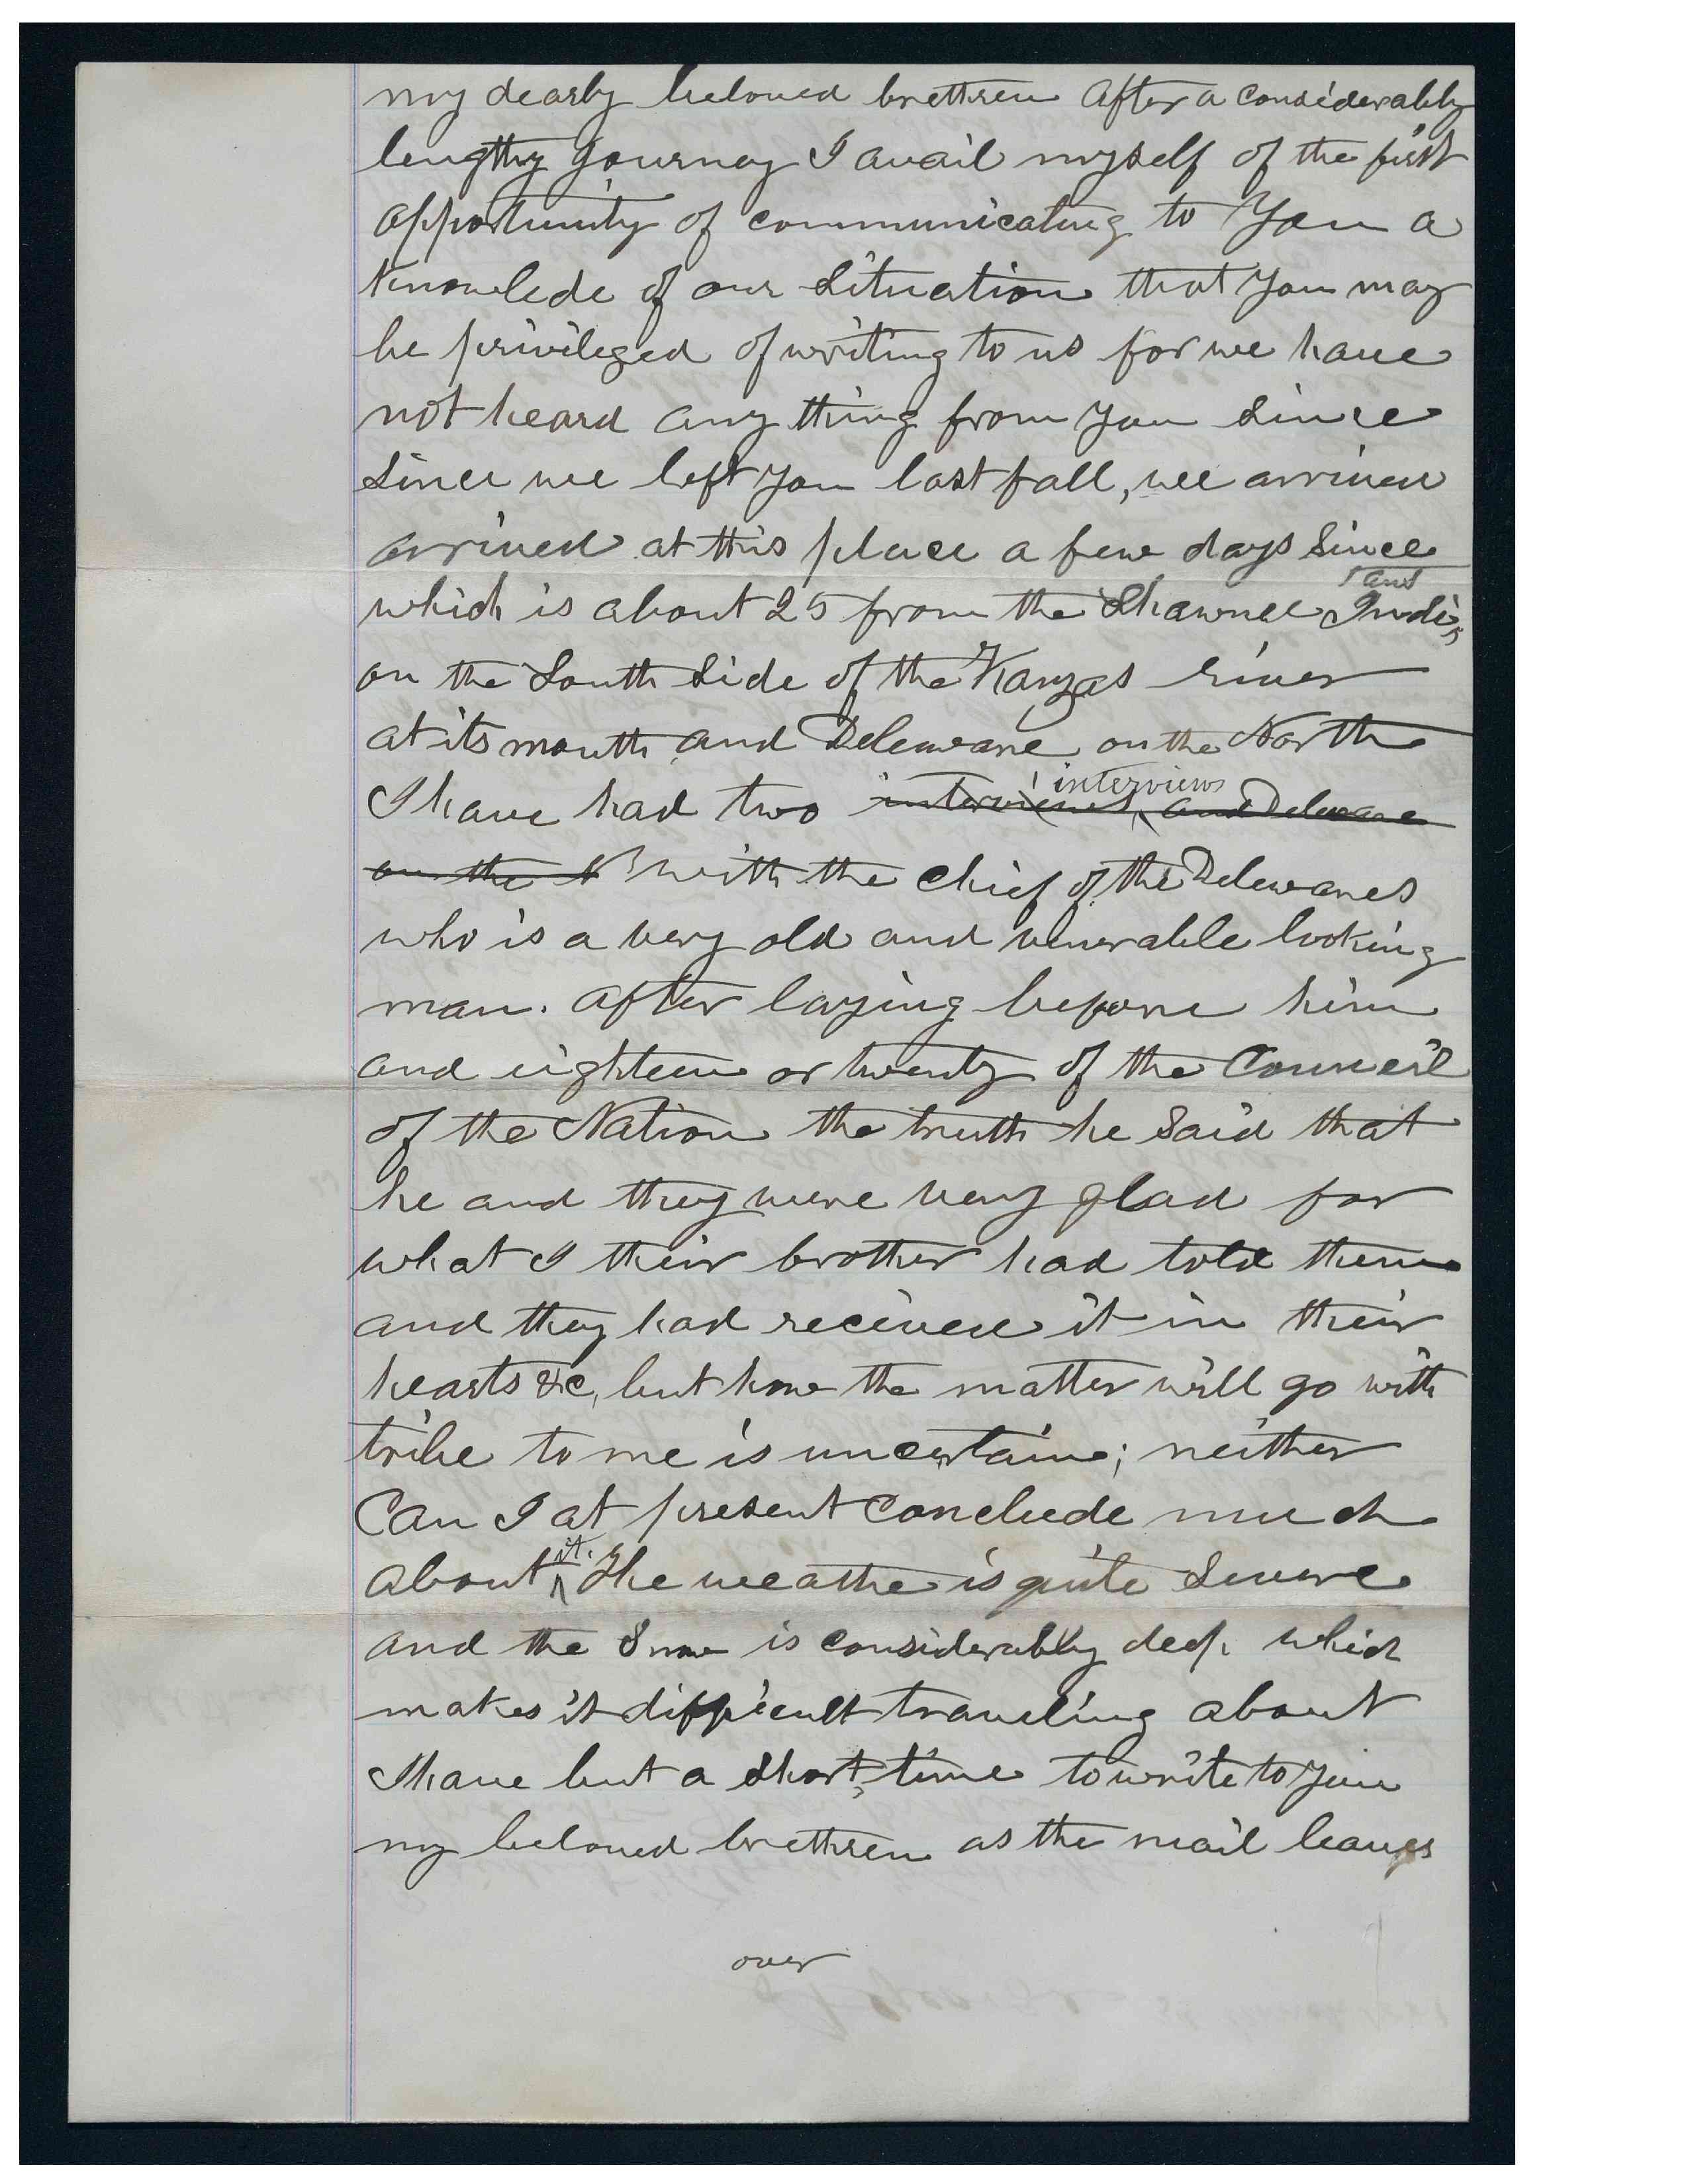 my dearly beloved brethren After a considerably
lengthy journey I avail myself of the first
opportunity of communicating to you a
knowlede of our situation that you may
be privileged of writing to us for we have
not heard any thing from you since
since we left you last fall, we arrived
arrived at this place a few days since
which is about 25 from the Shawnee Indians
on the South side of the Kanzas river
at its mouth and Delewares on the North
I have had two interviews, and Delaware interviews
on the N with the chief of the Delewares
who is a very old and venerable looking
man. after laying before him
and eighteen or twenty of the Council
of the Nation the truth he said that
he and they were very glad for
what I their brother had told them
and they had received it in their
hearts &c, but how the matter will go with
tribe to me is uncertain; neither
Can I at present conclude much
about it. The weathe is quite severe
and the Snow is considerably deep which
makes it difficult traveling about
I have but a short time to write to you
my beloved brethren as the mail leaves
over